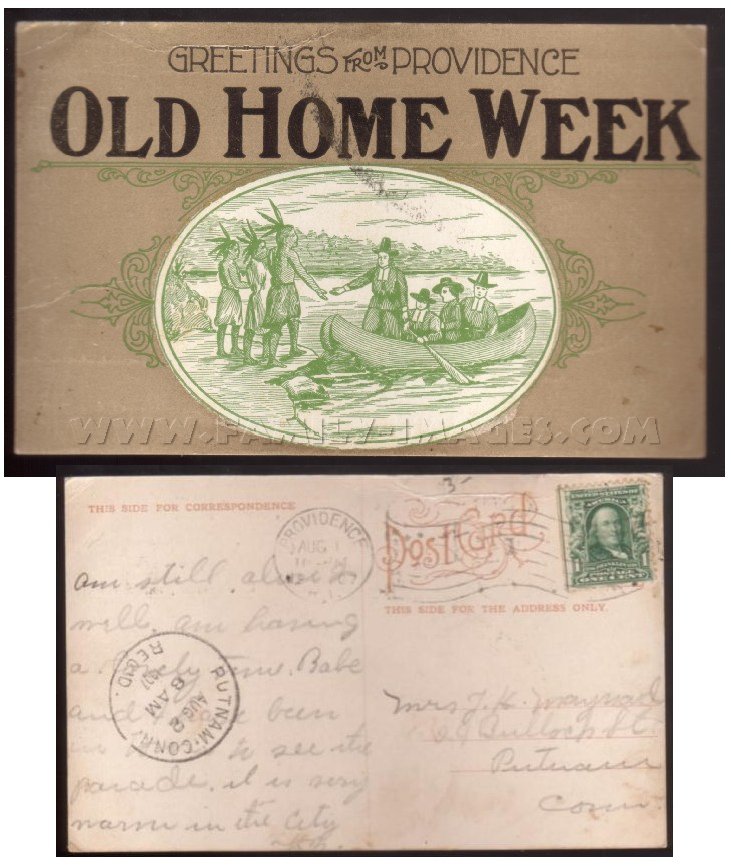 GREETINGS FROM PROVIDENCE
OLD HOME WEEK
WWW.FAMILY-IMAGES.COM
3-
THIS SIDE FOR CORRESPONDENCE
PROVIDENCE
AUG 1
POST CARD
UNITED STATES OF AMERICA
1
ONE CENT
THIS SIDE FOR THE ADDRESS ONLY.
am still alive &
well am having
a lovely time. Babe
and I have been
to see the
parade, it is very
warm in the city
PUTNAM, CONN.
AUG 2
8 AM
1907
REC'D.
Mrs J. H.
St.
Putnam
Conn.